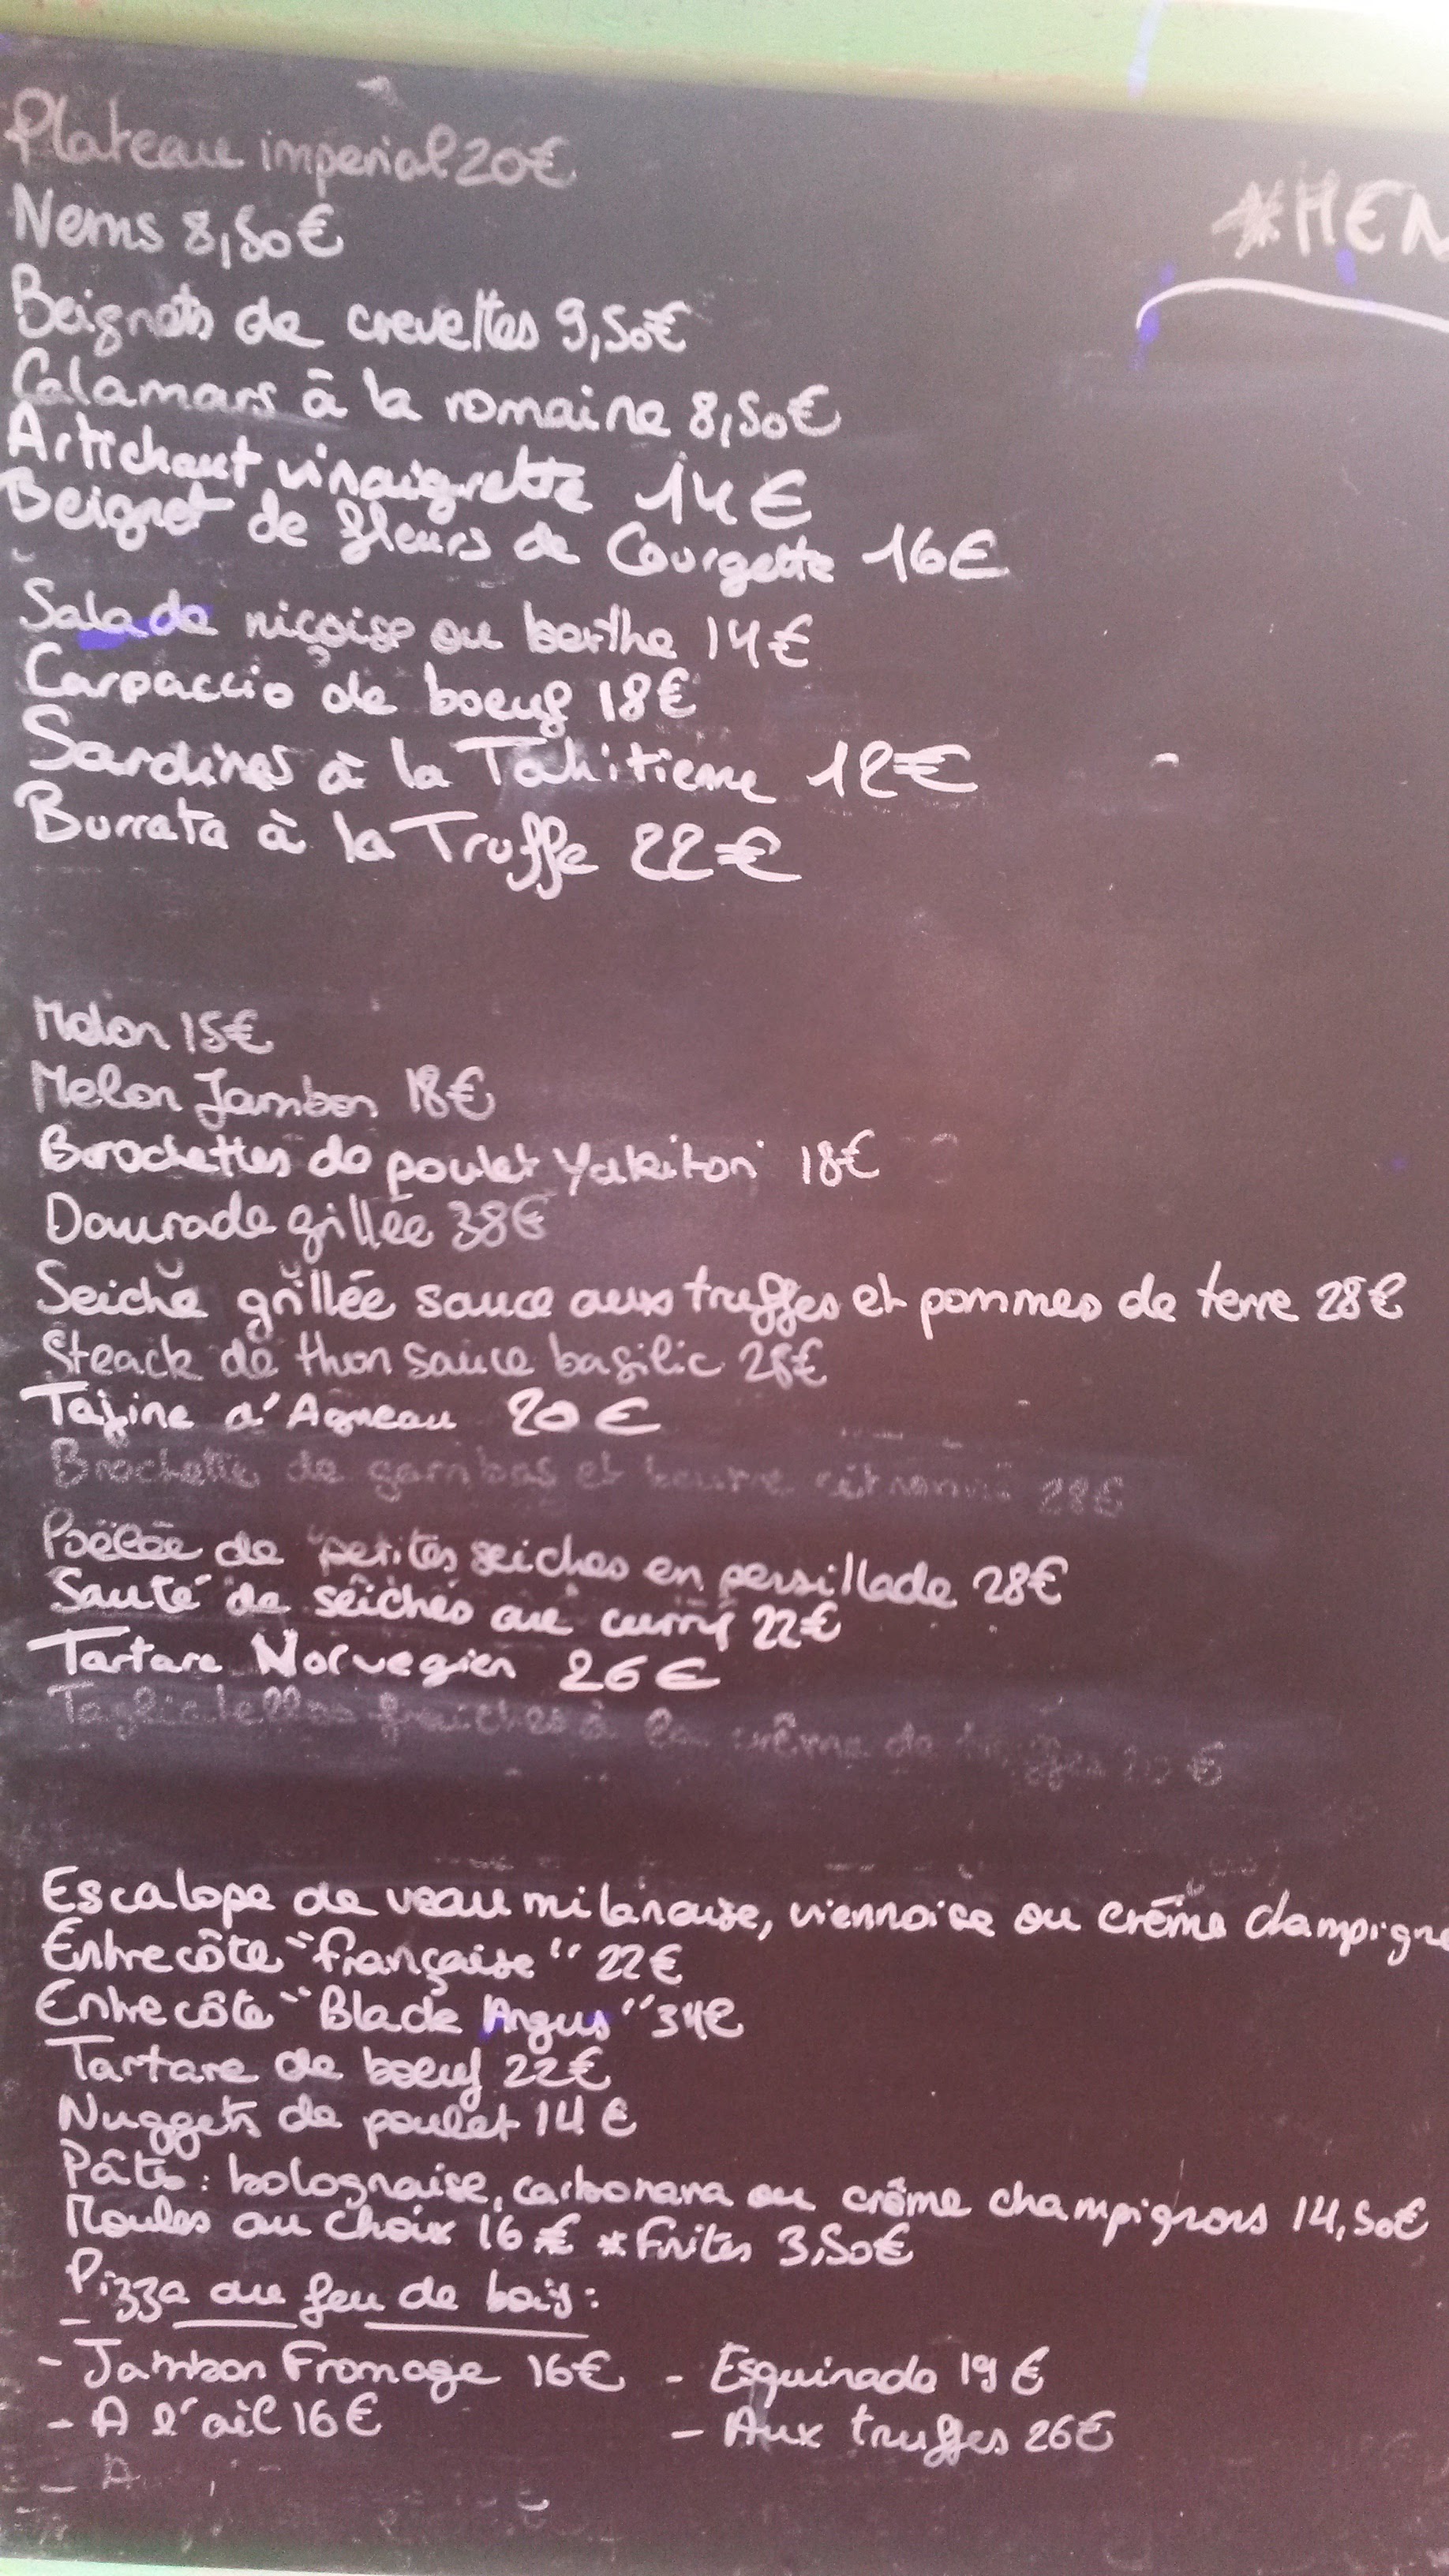 Plateau impérial 20€
*MEN
Nems 8,50€
Beignets de crevettes 9,50€
Calamars à la romaine 8,50€
Artichaut vinaigrette 14€
Beignet de fleurs de Courgette 16€
Salade niçoise ou berthe 14€
Carpaccio de boeuf 18€
Sardines à la Tahitienne 12€
Burrata à la Truffe 22€
Melon 15€
Melon Jambon 18€
Brochettes de poulet Yakitori 18€
Daurade grillée 38€
Seiche grillée sauce aux truffes et pommes de terre 28€
Steack de thon sauce basilic 28€
Tajine d'Agneau 20€
Brochette de gambas et beurre citronné 28€
Poêlée de petites seiches en persillade 28€
Sauté de seiches au curry 22€
Tartare Norvegien 26€
Tagliatelles fraiches à la crême de truffes €
Escalope de veau milanaise, viennoise ou crême champigno
Entrecôte "française" 22€
Entrecôte "Black Angus" 34€
Tartare de boeuf 22€
Nuggets de poulet 14€
Pâtes: bolognaise, carbonara ou crême champignons 14,50€
Moules au choix 16€ *Frites 3,50€
Pizza au feu de bois:
- Jambon Fromage 16€ - Esquinade 19€
- A l'ail 16€ - Aux truffes 26€
- A